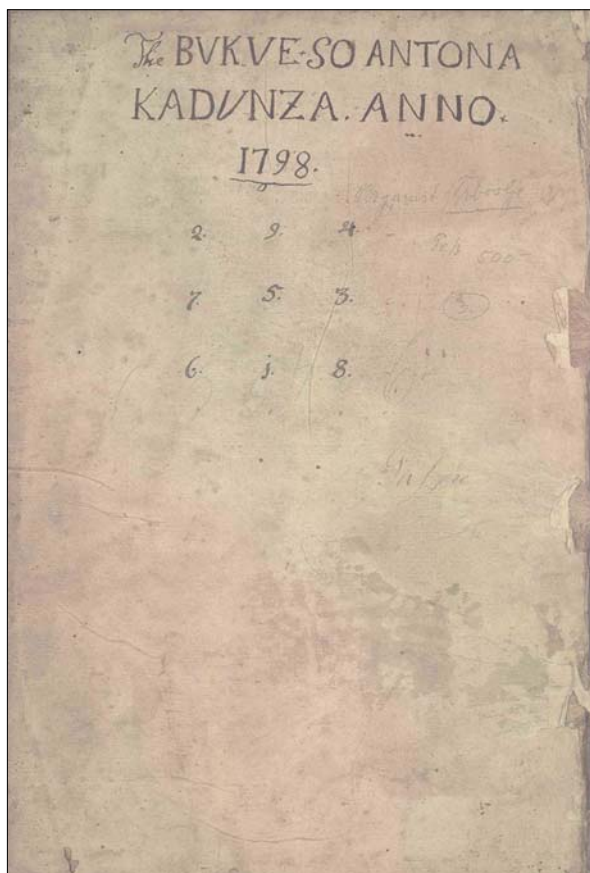 The BVKVE-SO ANTONA
KADVNZA. ANNO.
1798.
2. 9. 4.
7. 5. 3. (3.)
6. j. 8.